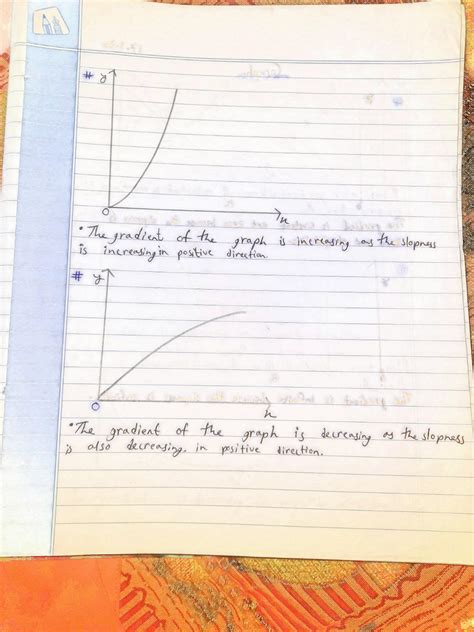 # y
O
x
• The gradient of the graph is increasing as the slopness
is increasing in positive direction
# y
O
x
• The gradient of the graph is decreasing as the slopness
is also decreasing. in positive direction.